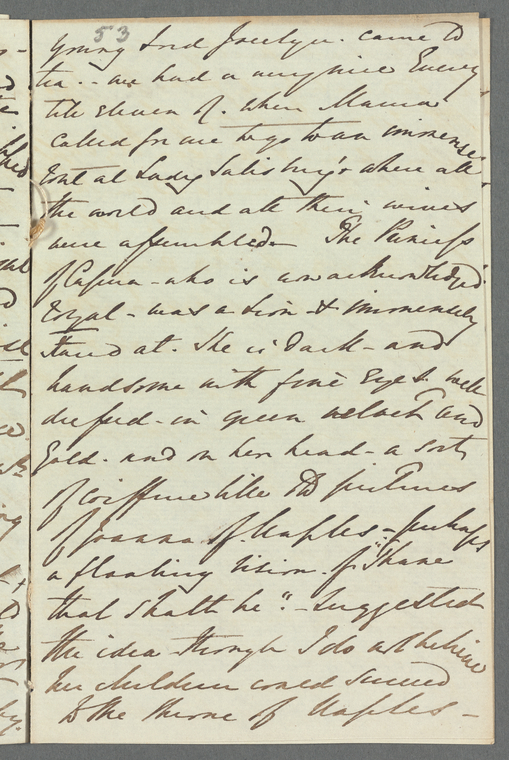 53
young Lord Jocelyn. came to
tea - we had a very nice Eveng
till Eleven O'. when Mama
called for me to go to an immense
rout at Lady Salisbury's where all
the world and all their wives
were assembled - The Princess
of Capua - who is unacknowledged
Royal - was a Lion & immensely
stared at. She is dark - and
handsome with fine Eyes & well
dressed - in green velvet and
Gold. and on her head - a sort
of coiffure like the pictures
of Joanna of Naples - perhaps
a floating vision of "Thane
that shalt be" - suggested
the idea though I do not believe
her children could succeed
to the throne of Naples -